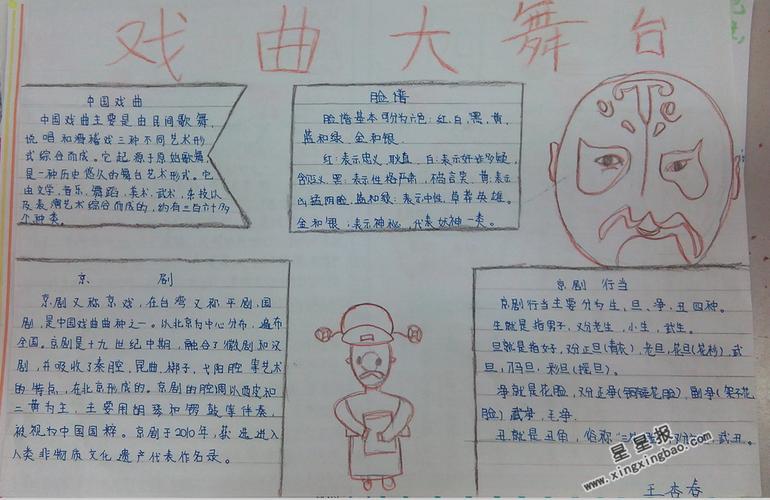 戏曲大舞台
中国戏曲
中国戏曲主要是由民间歌舞、
说唱和滑稽戏三种不同艺术形
式综合而成。它起源于原始歌舞,
是一种历史悠久的舞台艺术形式。它
由文学、音乐、舞蹈、美术、武术、杂技以
及表演艺术综合而成的,约有三百六十多
个种类。
脸谱
脸谱基本可分为六色:红、白、黑、黄、
蓝和绿、金和银.
红:表示忠义、耿直. 白:表示奸诈多疑,
黑:表示性格严肃,不苟言笑.黄:表示
凶猛阴险,蓝和绿:表示中性,草莽英雄.
金和银:表示神秘,代表妖神一类。
京剧
京剧又称京戏,在台湾又称平剧、国
剧,是中国戏曲曲种之一。以北京为中心分布,遍布
全国。京剧是十九世纪中期,融合了徽剧和汉
剧,并吸收了秦腔、昆曲、梆子、弋阳腔等艺术
的特点,在北京形成的。京剧的腔调以西皮和
二黄为主,主要用胡琴和锣鼓等伴奏,
被视为中国国粹。京剧于2010年,获选进入
人类非物质文化遗产代表作名录。
京剧 行当
京剧行当主要分为生、旦、净、丑四种。
生就是指男子,又分老生,小生,武生。
旦就是指女子,又分正旦(青衣),老旦,花旦(花衫),武
旦,刀马旦,彩旦(摇旦)。
净就是花脸,又分正净(铜锤花脸),副净(架子花
脸),武净,毛净。
丑就是丑角,俗称武丑。
王杏春
星星报
www.xingxingbao.com